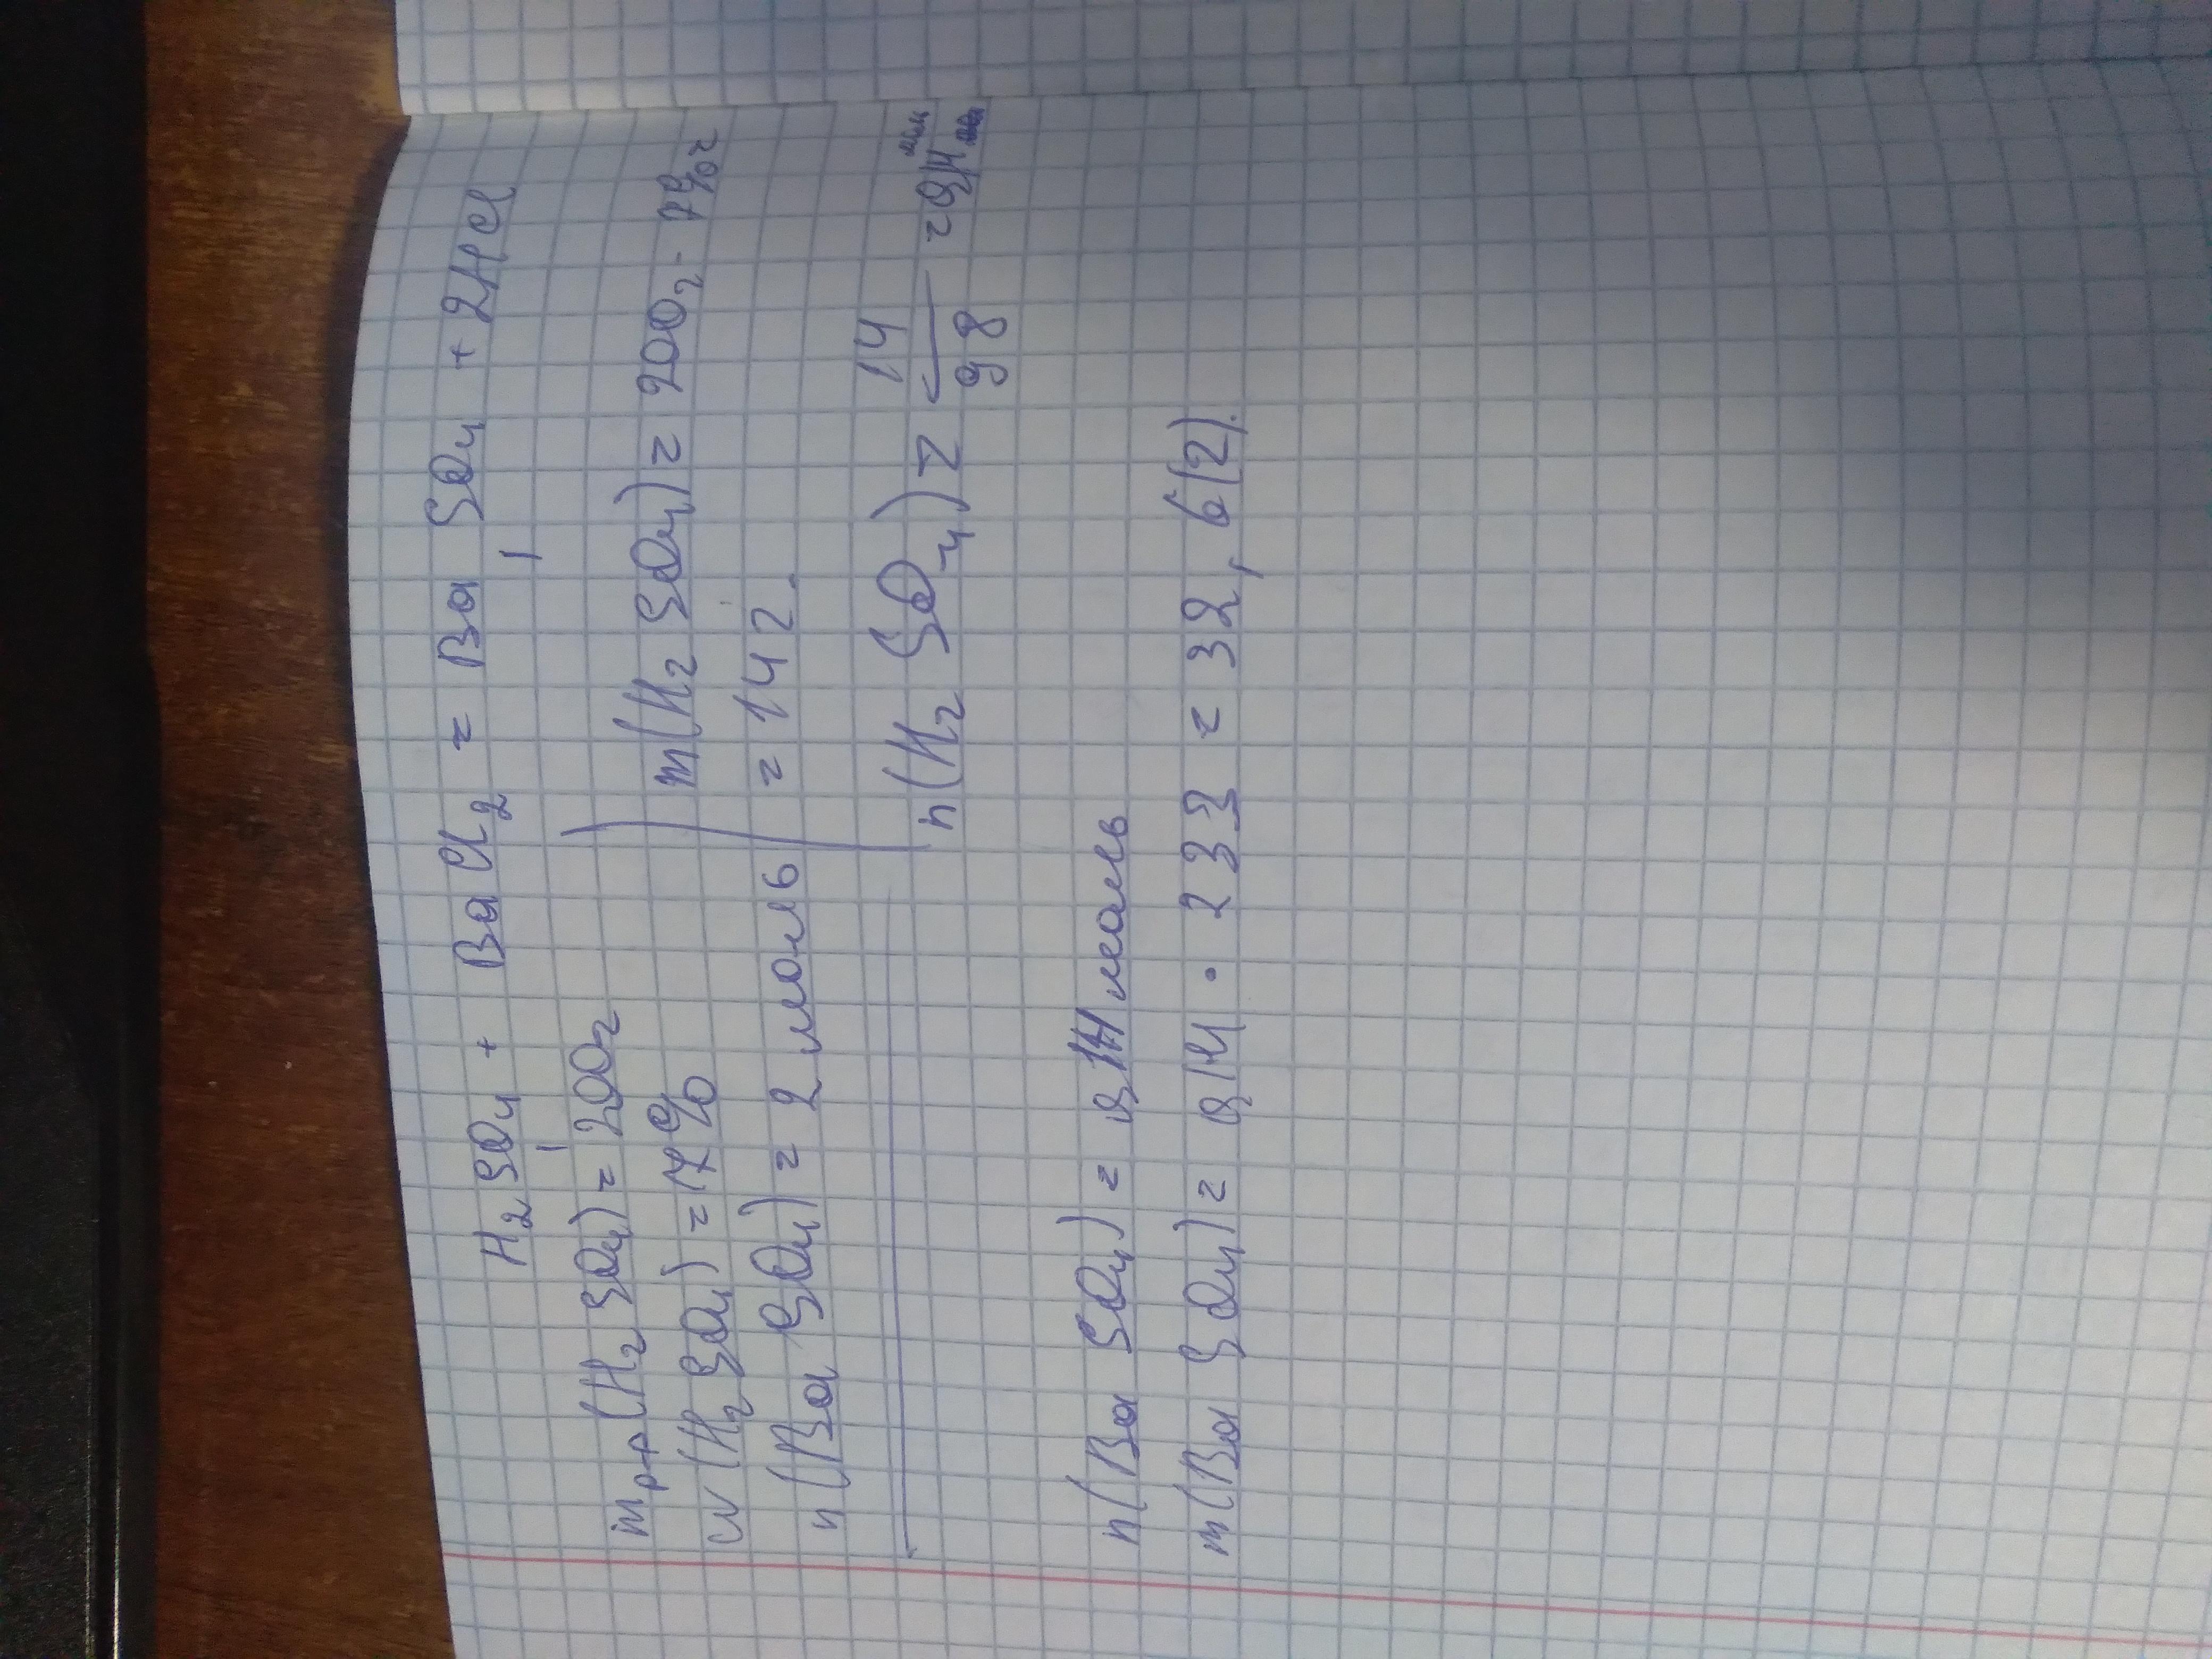 H₂SO₄ + BaCl₂ = BaSO₄ + 2HCl
1 1
m р-р (H₂SO₄) = 200г
w (H₂SO₄) = 7%
n (BaSO₄) = ? моль
m (H₂SO₄) = 200г · 7%
= 14г.
n (H₂SO₄) = 14/98 = 0,14 моль
n (BaSO₄) = 0,14 моль
m (BaSO₄) = 0,14 · 233 = 32,6 (г).